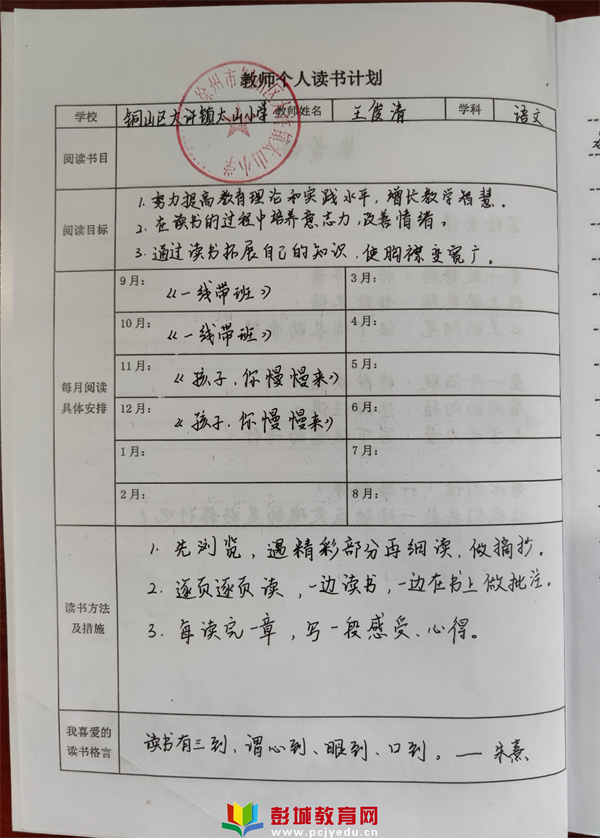 教师个人读书计划
学校 铜山区大许镇太山小学 教师姓名 王俊清 学科 语文
阅读书目
阅读目标
1. 努力提高教育理论和实践水平，增长教学智慧。
2. 在读书的过程中培养意志力，改善情绪，
3. 通过读书拓展自己的知识，使胸襟变宽广。
每月阅读
具体安排
9月：《一线带班》 3月：
10月：《一线带班》 4月：
11月：《孩子，你慢慢来》 5月：
12月：《孩子，你慢慢来》 6月：
1月： 7月：
2月： 8月：
读书方法
及措施
1. 先浏览，遇精彩部分再细读，做摘抄。
2. 逐页逐页读，一边读书，一边在书上做批注。
3. 每读完一章，写一段感受、心得。
我喜爱的
读书格言
读书有三到，谓心到、眼到、口到。——朱熹
彭城教育网
www.pcjyedu.cn